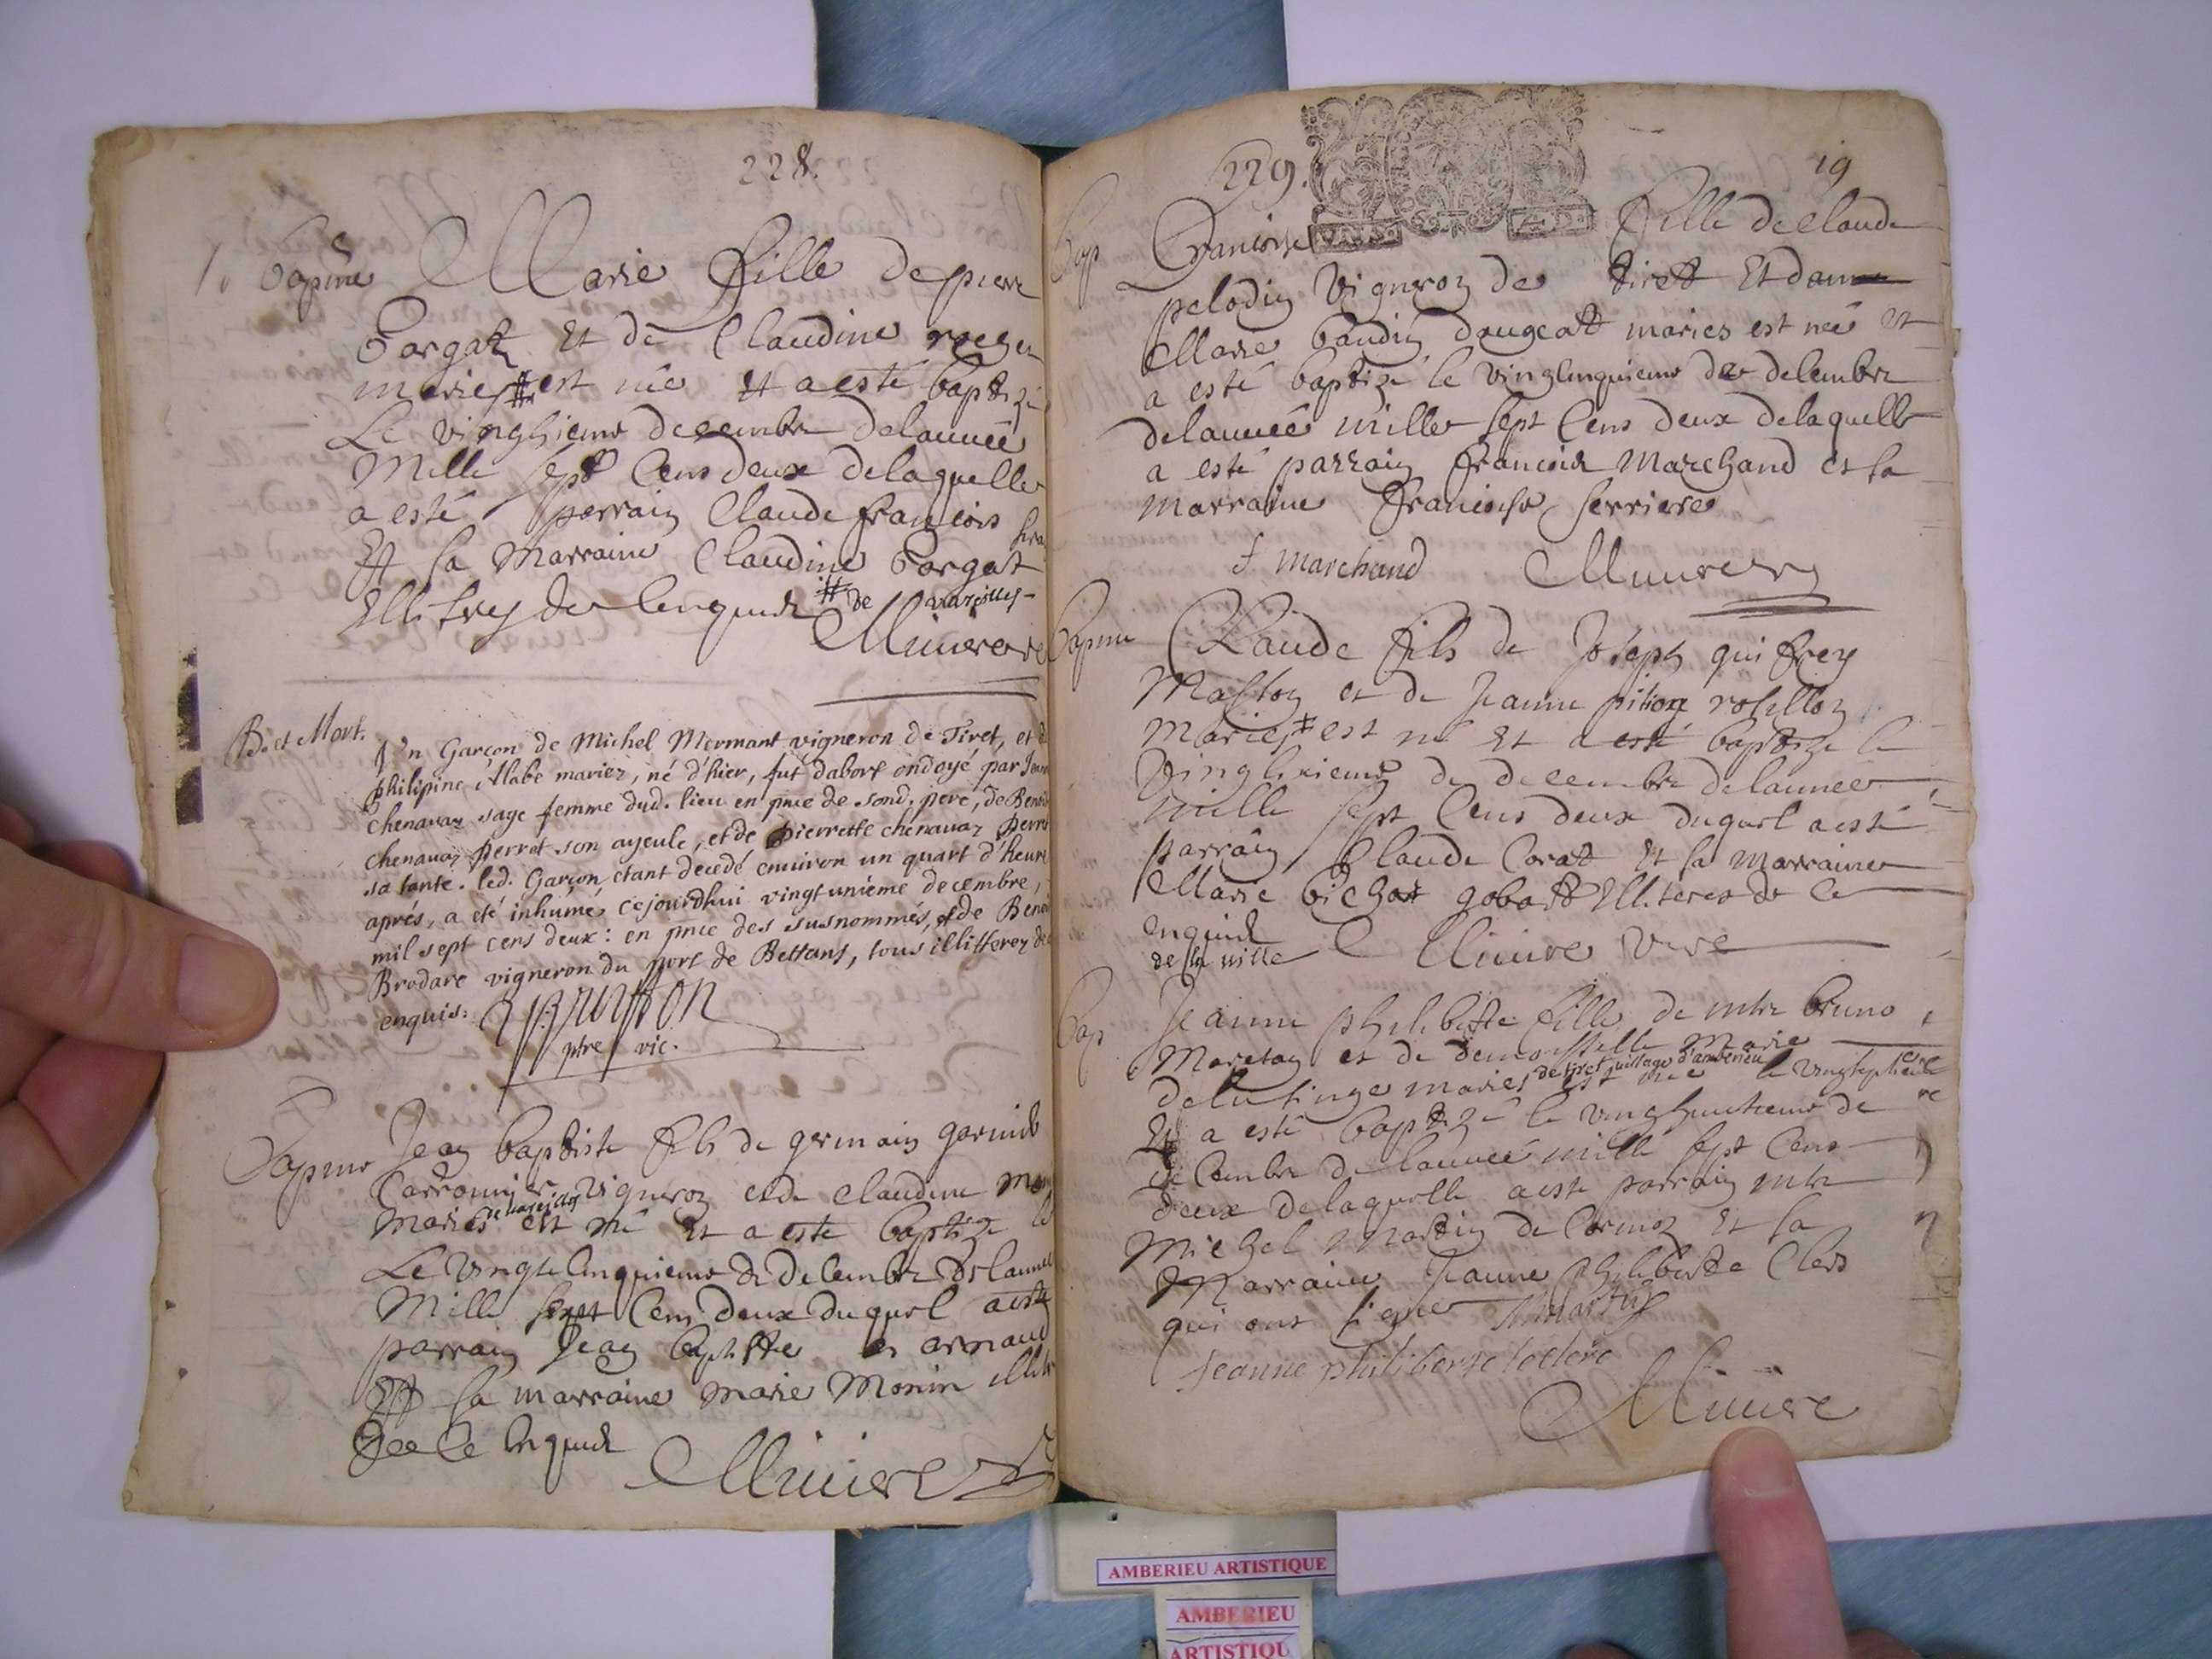 228.
Bapme Marie fille de pierre
Gorgat Et de Claudine
maries # est née et a esté baptizé
Le vingtieme decembre delannée
Mille sept Cens deux delaquelle
a esté parrain Claude francois
Et sa Marraine Claudine Gorgat
de Lenquis # de vareilles
Munere
B. et Mort. Un Garçon de Michel Mermant vigneron de Tiret, et de
philipine Alabe mariez, né d'hier, fut dabort ondoyé par
chenavaz sage femme dud. lieu en pnce de sond. pere, de Benoite
chenavaz perret son ayeule, et de pierrette chenavaz perret
sa tante. led. Garçon, étant decedé environ un quart d'heure
aprés, a eté inhumé cejourdhui vingt unième decembre,
mil sept cens deux: en pnce des susnommés, et de Benoit
Brodare vigneron du port de Bettant, tous illitterez de
enquis.
ptre vic.
Bapme Jean baptiste fils de germain garnier
Carronnier vigneron et de Claudine
maries de vareilles est né et a esté baptize le
Le vingt cinquieme de decembre delannee
Mille sept Cens deux duquel a esté
parrain Jean baptiste armand
Et sa marraine marie Monin
de ce enquis
Munere
229.
19
Bap Francoise fille de Claude
pelodin vigneron de tiret Et
Marie baudin dougeat maries est née et
a esté baptizé le vingtcinquieme de decembre
delannée mille sept Cens deux delaquelle
a esté parrain francois Marchand et sa
marraine francoise ferriere
f marchand Munere
Bapme Claude fils de Joseph quifrey
Maston et de Jeanne pition
maries # est né Et a esté baptize le
de decembre delannée
mille sept Cens deux duquel a esté
parrain Claude Corat Et sa Marraine
Marie bichat gobat Illiteres de ce
enquis
# de la ville Munere
Bap Jeanne philiberte fille de mtre bruno
Moretan et de demoiselle Marie
maries de tiret village d'amberieu est née le vingtseptieme
Et a esté baptizé le vingthuictieme de
decembre de lannée mille sept Cens
deux delaquelle a esté parrain mtre
Michel Martin de Cormoz Et sa
Marraine Jeanne philiberte Clerc
qui ont signe Martin
Jeanne philiberte leclerc
Munere
AMBERIEU ARTISTIQUE
AMBERIEU
ARTISTIQU